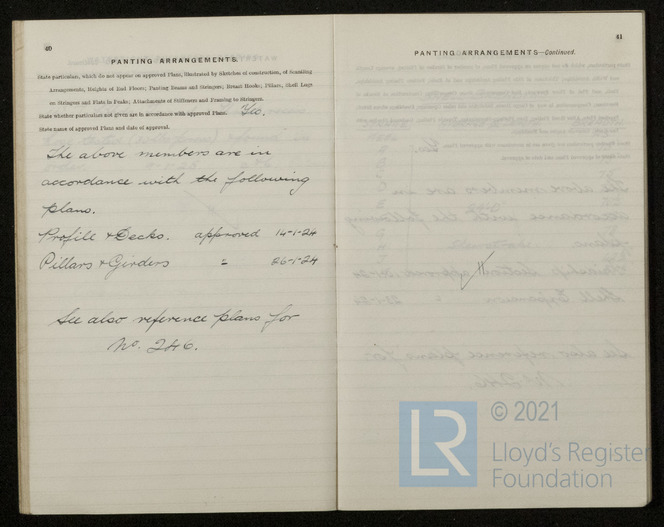 40
PANTING ARRANGEMENTS.
State particulars, which do not appear on approved Plans, illustrated by Sketches of construction, of Scantling
Arrangements, Heights of End Floors; Panting Beams and Stringers; Breast Hooks; Pillars, Shell Lugs
on Stringers and Flats in Peaks; Attachments of Stiffeners and Framing to Stringers.
State whether particulars not given are in accordance with approved Plans. Yes.
State name of approved Plans and date of approval.
The above members are in
accordance with the following
plans.
Profile & Decks. approved 14-1-24
Pillars & Girders " 26-1-24
See also reference plans for
No. 246.
41
PANTING ARRANGEMENTS—Continued.
LR
© 2021
Lloyd's Register
Foundation